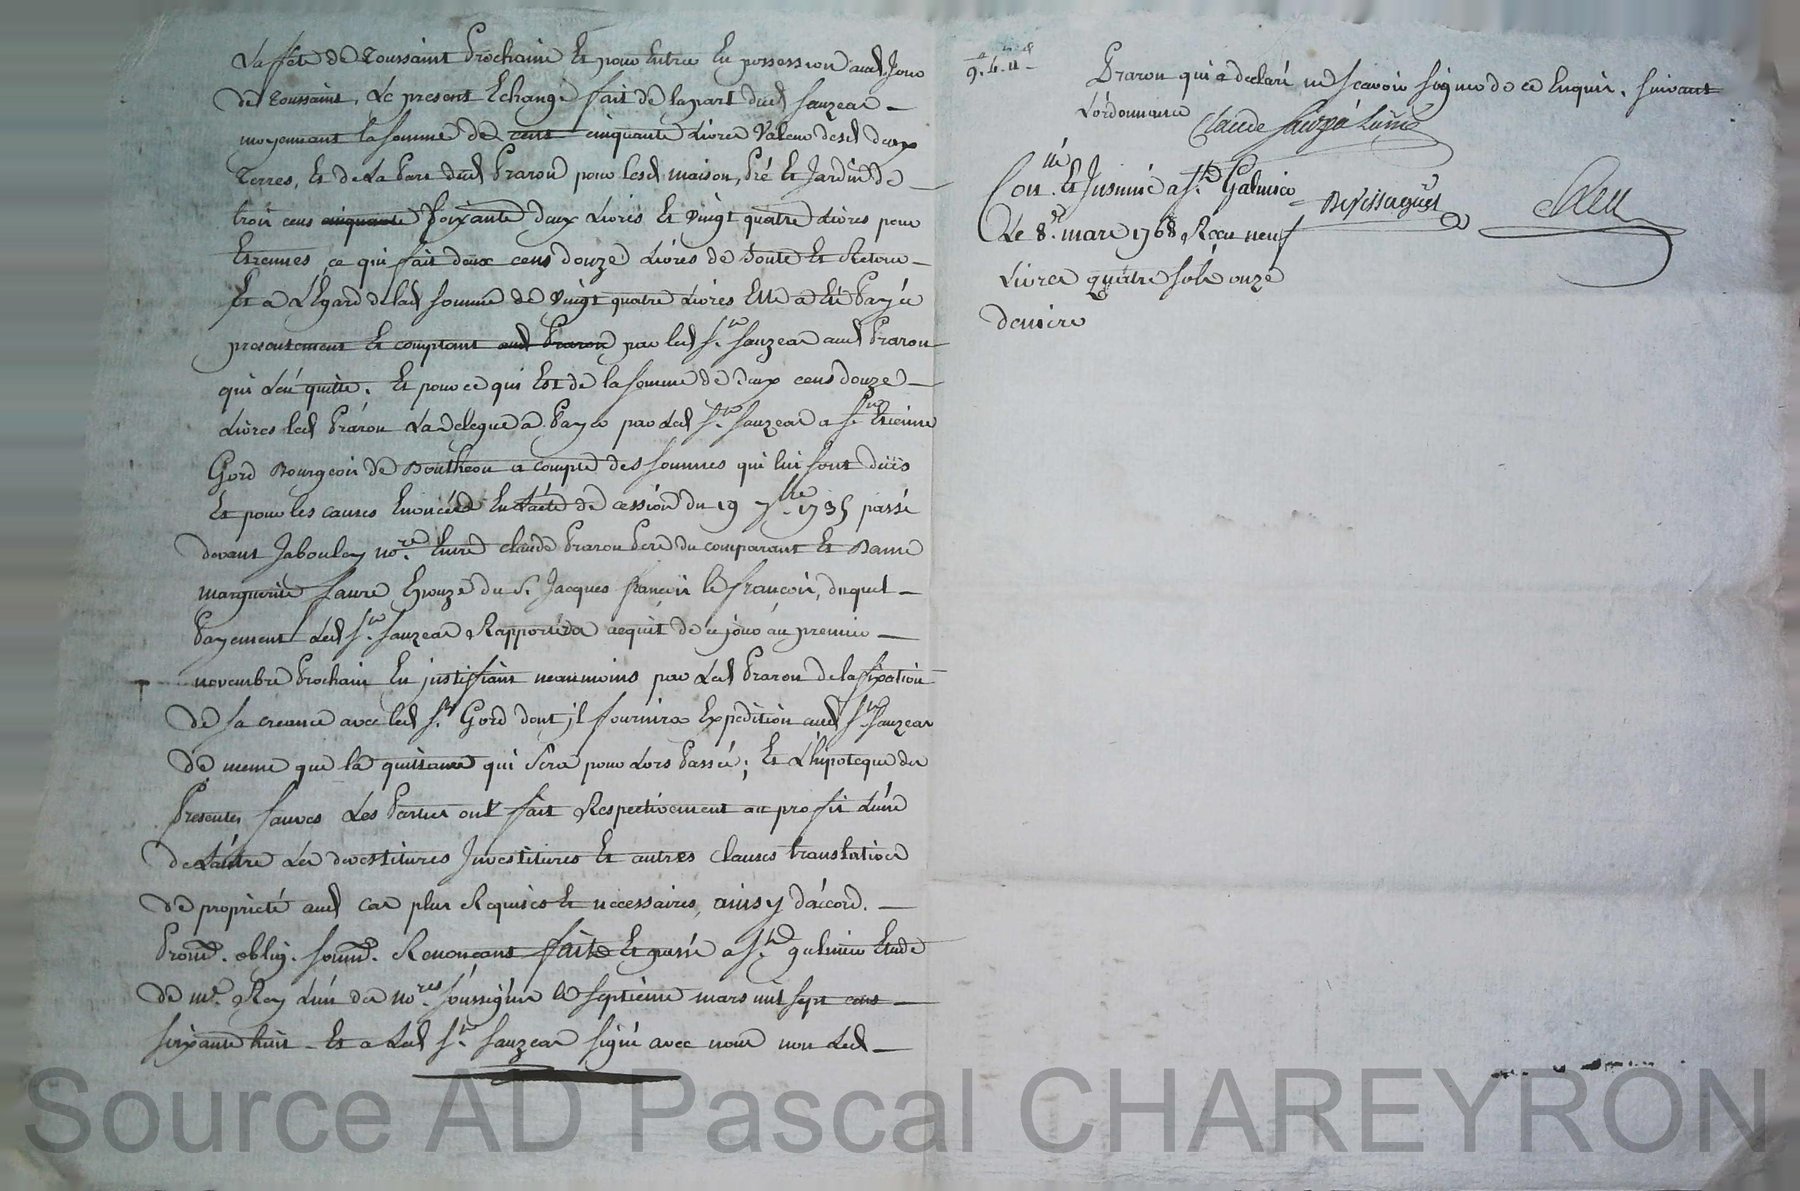 La fete de Toussaint Prochaine Et pour Entrer En possession aud Jour
de Toussaint, Le present Echange fait de la part dud Sauzear
moyennant la somme de cent cinquante Livres Valeur desd deux
Terres, Et de La Part dud Praron pour lesd maison, Pré Et Jardin de
trois cens cinquante soixante deux Livres Et vingt quatre Livres pour
Etrennes ce qui fait deux cens douze Livres de Soute Et Retour
Et a L'Egard de lad somme de Vingt quatre Livres Elle a Eté Payée
presentement Et comptant aud Praron par led Sr. Sauzear aud Praron
qui L'en quitte. Et pour ce qui Est de la somme de deux cens douze
Livres led Praron La delegue a Payer par Led Sr. Sauzear a Sr Etienne
Gord Bourgeois de Boutheon a compte des sommes qui lui sont duës
Et pour les causes Enoncées En L'acte de cession du 19 7bre 1735 passé
devant Jabouley nore. Entre claude Praron Pere du comparant Et Dame
marguerite faure Epouze du S. Jacques françois le françois, duquel
Payement Led Sr. Sauzear Rapportera acquit de ce jour au premier
novembre Prochain En justifiant neanmoins par Led Praron de la fixation
de sa creance avec led Sr Gord dont il fournira Expedition aud Sr Sauzear
de meme que la quittance qui Sera pour Lors Passée; Et L'hipoteque des
Presentes sauves Les Parties ont fait Respectivement au profit L'une
de L'autre Les devestitures Investitures Et autres Clauses translatives
de proprieté aud cas plus Requises Et necessaires, ainsy d'accord.
Prome. oblig. soume. Renonçant fait Et passé a St. galmier Etude
de me. Rey L'un des nores. soussignés le septieme mars mil sept cens
soixante huit Et a Led Sr. Sauzear signé avec nous non Led
9.4.11
Praron qui a declaré ne scavoir signer de ce Enquis. suivant
L'ordonnance
Con.lé Et Insinué a St. Galmier
Le 8. mars 1768 Reçu neuf
Livres quatre sols onze
deniers